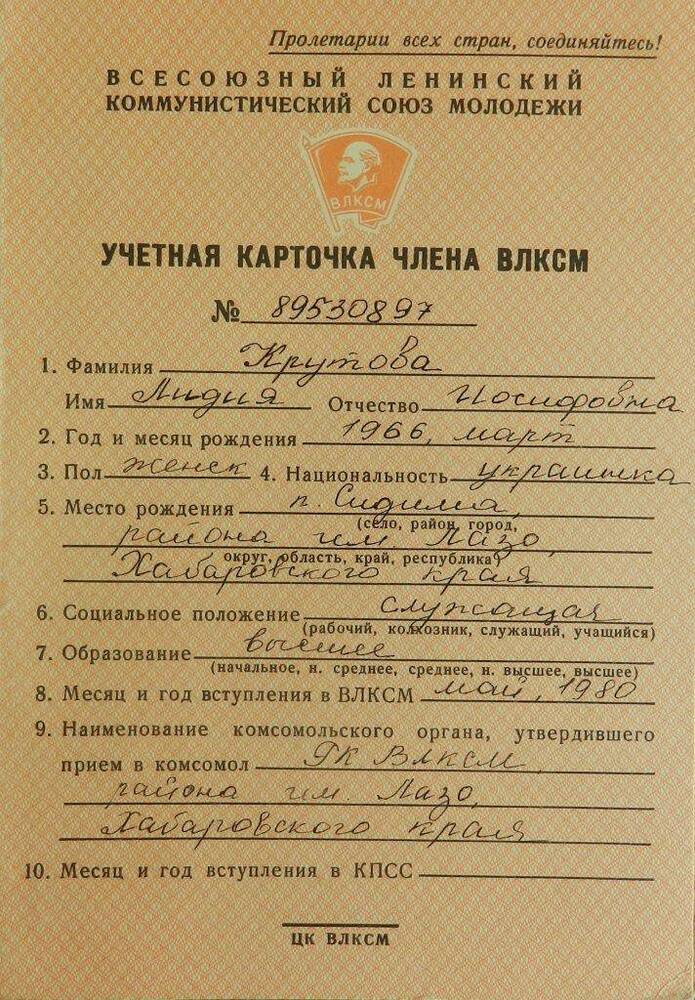 Пролетарии всех стран, соединяйтесь!
ВСЕСОЮЗНЫЙ ЛЕНИНСКИЙ
КОММУНИСТИЧЕСКИЙ СОЮЗ МОЛОДЕЖИ
ВЛКСМ
УЧЕТНАЯ КАРТОЧКА ЧЛЕНА ВЛКСМ
№ 89530897
1. Фамилия Крутова
Имя Лидия Отчество Иосифовна
2. Год и месяц рождения 1966, март
3. Пол женск 4. Национальность украинка
5. Место рождения п. Сидима,
(село, район, город,
района им. Лазо,
округ, область, край, республика)
Хабаровского края
6. Социальное положение служащая
(рабочий, колхозник, служащий, учащийся)
7. Образование высшее
(начальное, н. среднее, среднее, н. высшее, высшее)
8. Месяц и год вступления в ВЛКСМ май, 1980
9. Наименование комсомольского органа, утвердившего
прием в комсомол РК ВЛКСМ
района им. Лазо,
Хабаровского края
10. Месяц и год вступления в КПСС
ЦК ВЛКСМ